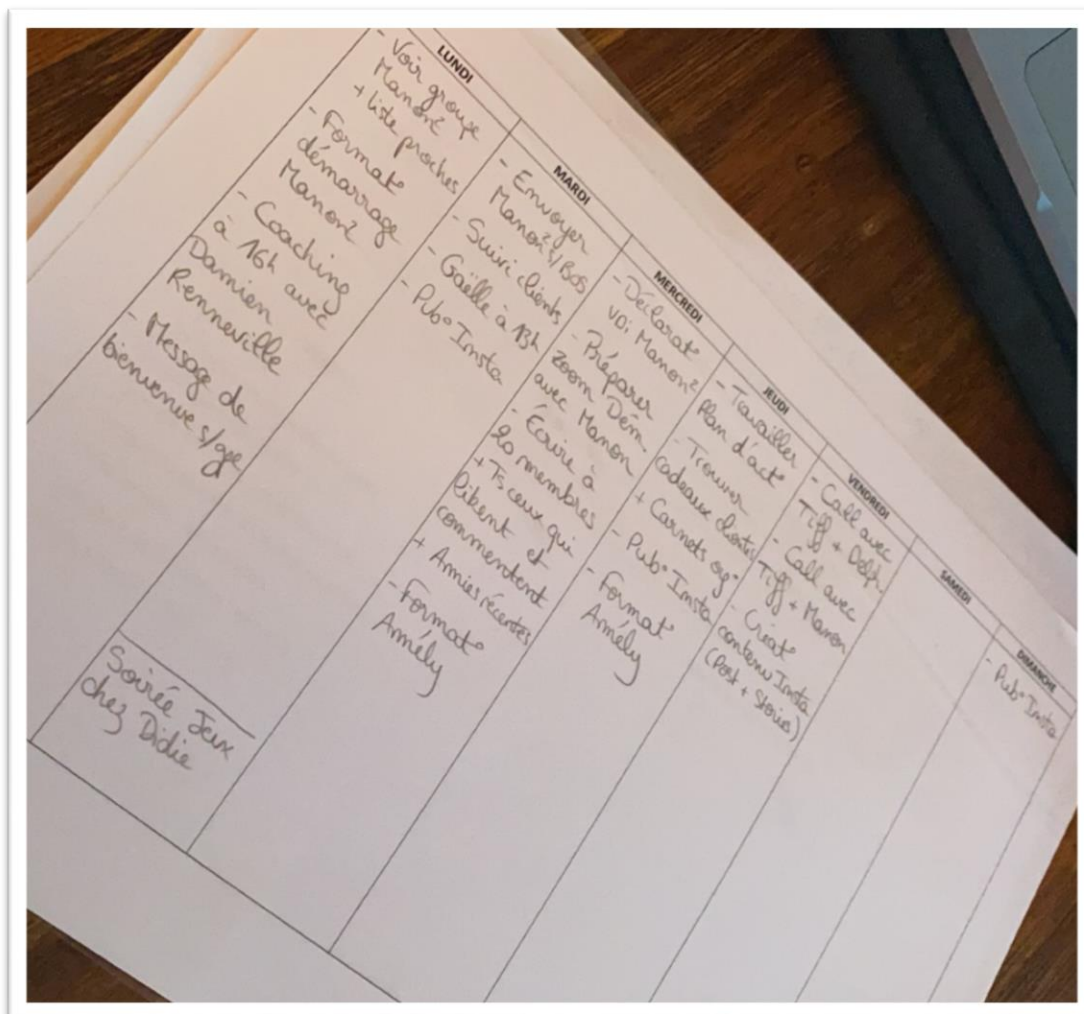 LUNDI
- Voir groupe
Manon2
+ liste proches
- Format°
démarrage
Manon2
- Coaching
à 16h avec
Damien
Renneville
- Message de
bienvenue s/gpe
Soirée Jeux
chez Didie
MARDI
- Envoyer
Manon2/Bos
- Suivi clients
- Gaëlle à 13h
- Pub° Insta
MERCREDI
- Déclarat°
VDi Manon2
- Préparer
zoom Dém
avec Manon
- Écrire à
20 membres
+ Ts ceux qui
likent et
commentent
+ Amies récentes
- Format°
Amély
JEUDI
- Travailler
Plan d'act°
- Trouver
cadeaux clientes
+ Carnets og°
- Pub° Insta
- Format°
Amély
VENDREDI
- Call avec
Tiff + Delph
- Call avec
Tiff + Manon
- Créat°
contenu Insta
(Post + Stories)
SAMEDI
DIMANCHE
- Pub° Insta